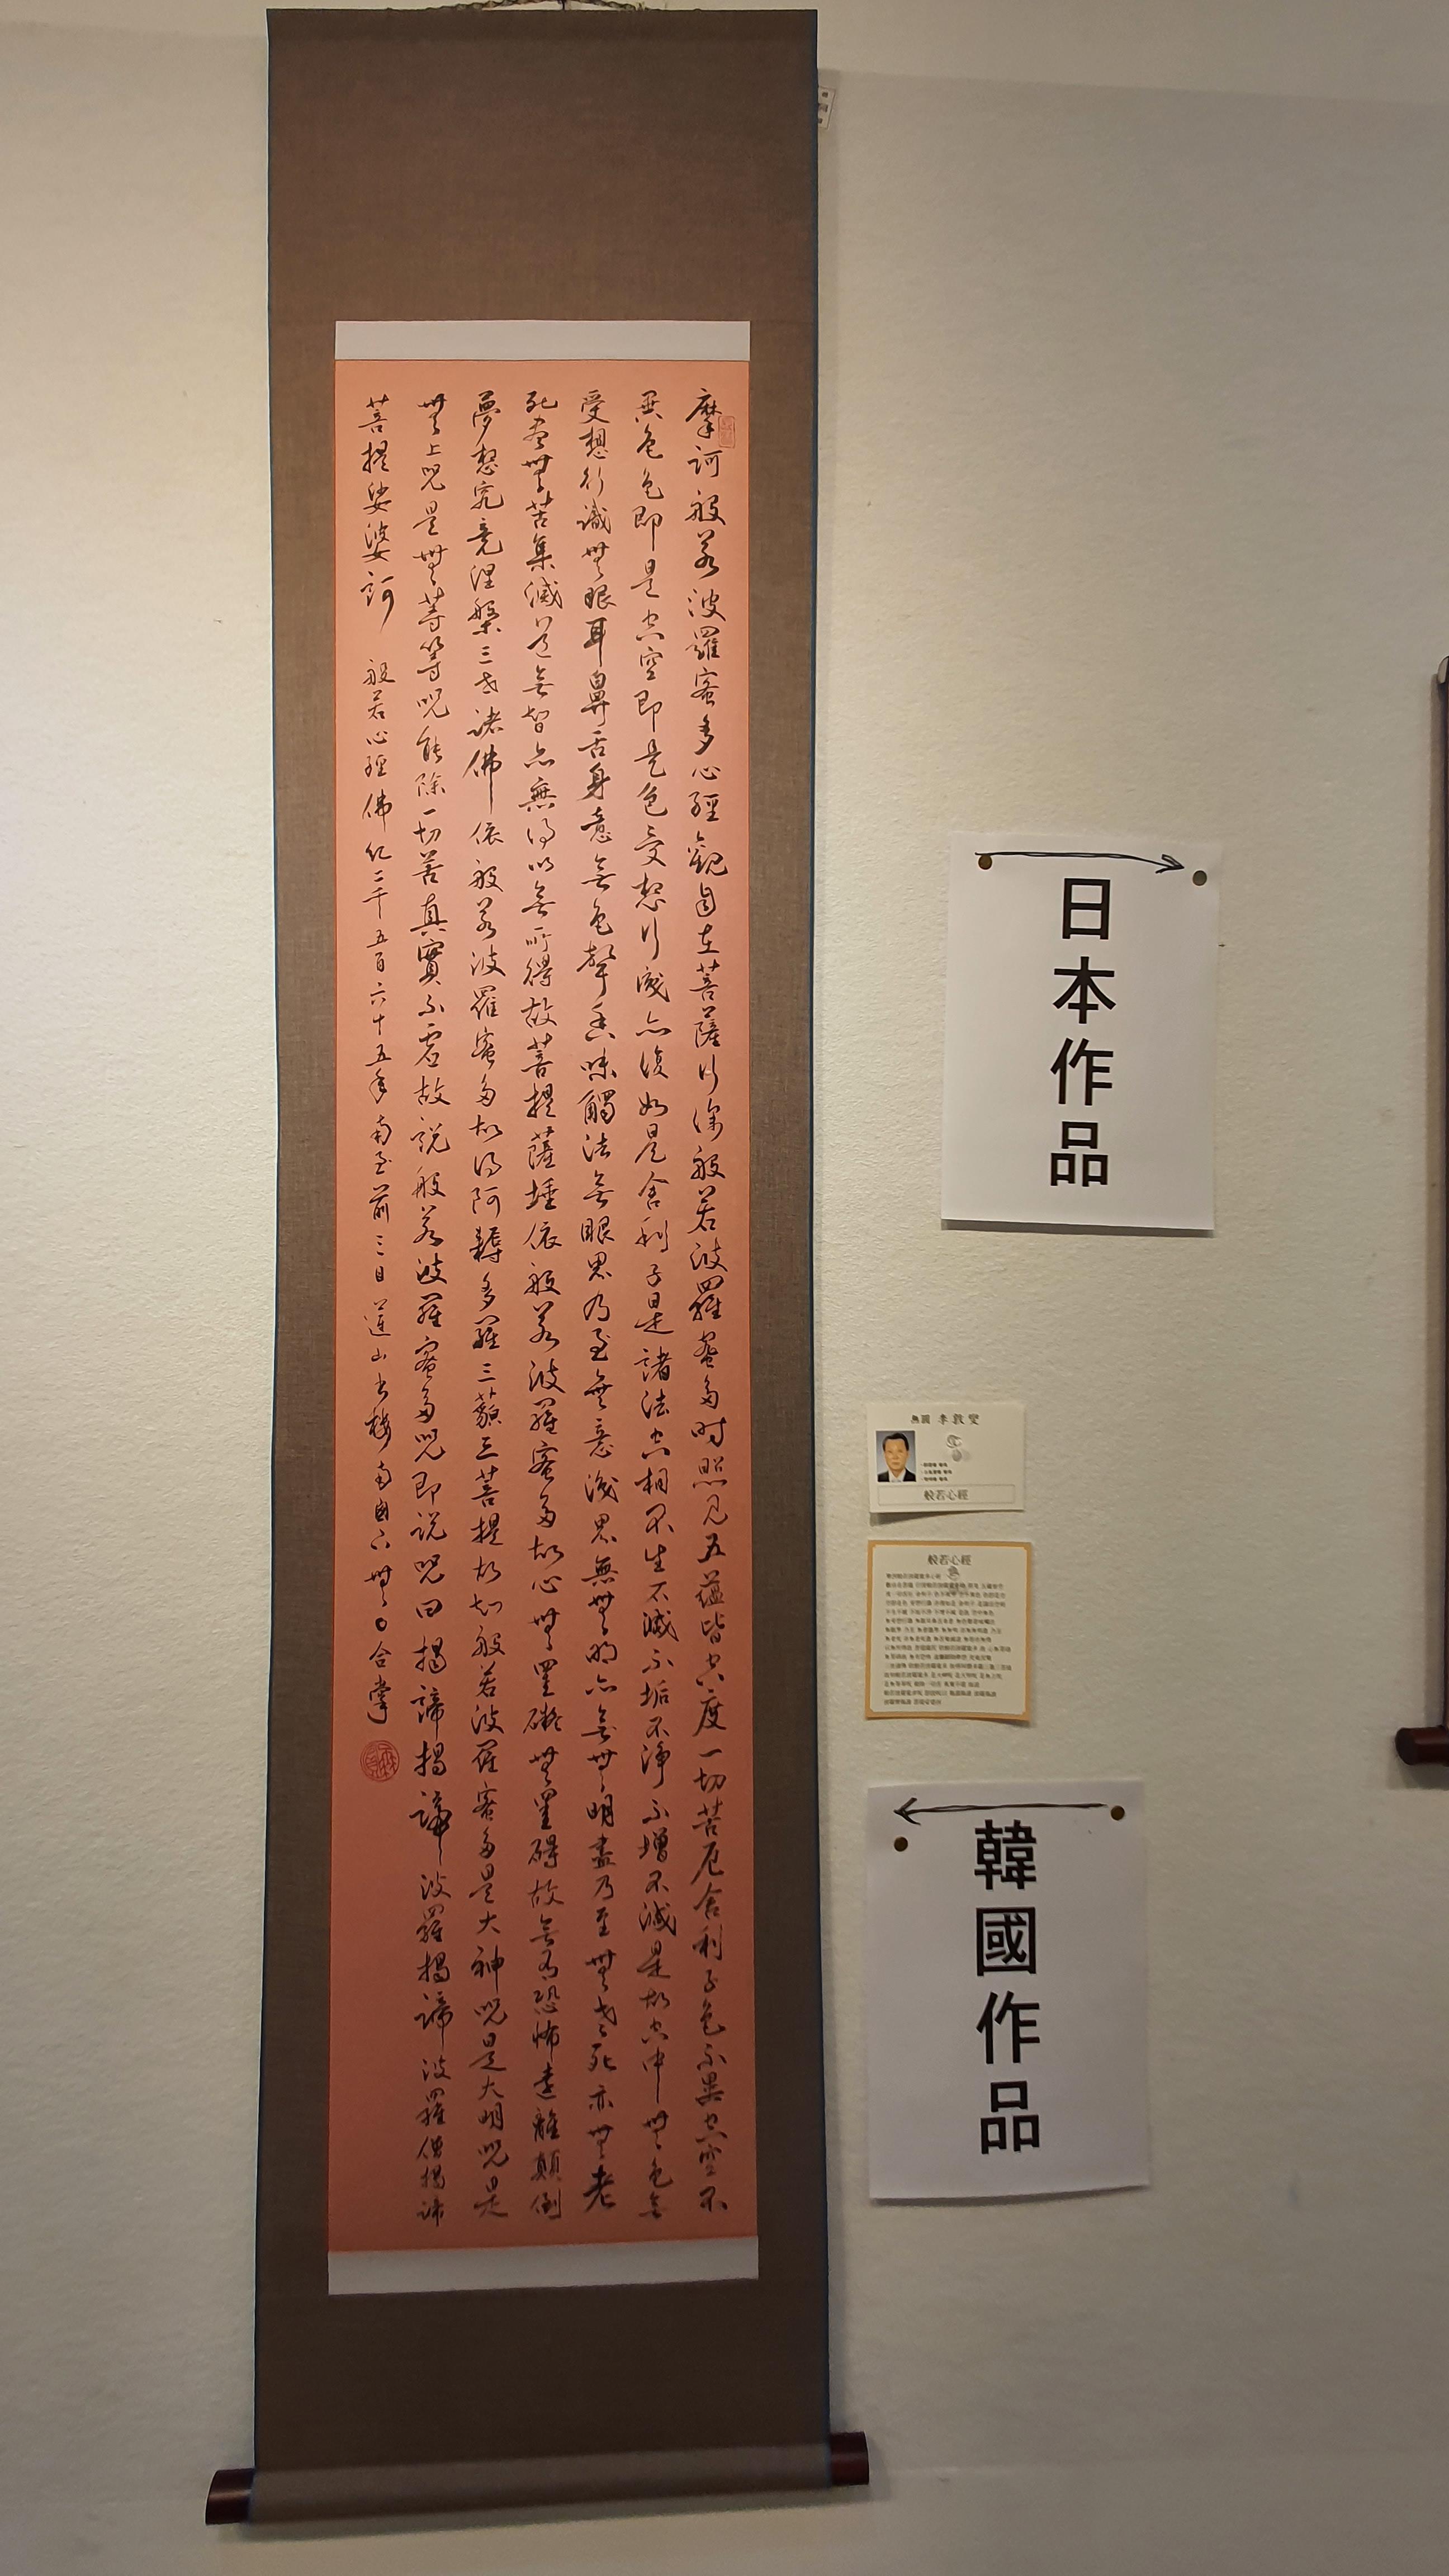 摩訶般若波羅蜜多心經觀自在菩薩行深般若波羅蜜多時照見五蘊皆空度一切苦厄舍利子色不異空空不
異色色即是空空即是色受想行識亦復如是舍利子是諸法空相不生不滅不垢不淨不增不減是故空中無色無
受想行識無眼耳鼻舌身意無色聲香味觸法無眼界乃至無意識界無無明亦無無明盡乃至無老死亦無老
死盡無苦集滅道無智亦無得以無所得故菩提薩埵依般若波羅蜜多故心無罣礙無罣碍故無有恐怖遠離顛倒
夢想究竟涅槃三世諸佛依般若波羅蜜多故得阿耨多羅三藐三菩提故知般若波羅蜜多是大神呪是大明呪是
無上呪是無等等呪能除一切苦真實不虛故說般若波羅蜜多呪即說呪曰揭諦揭諦波羅揭諦波羅僧揭諦
菩提娑婆訶 般若心經佛紀二千五百六十五年南至前三日蓮山書樓南窗下無〇合掌
日本作品
無圓 李敦燮
般若心經
般若心經
韓國作品